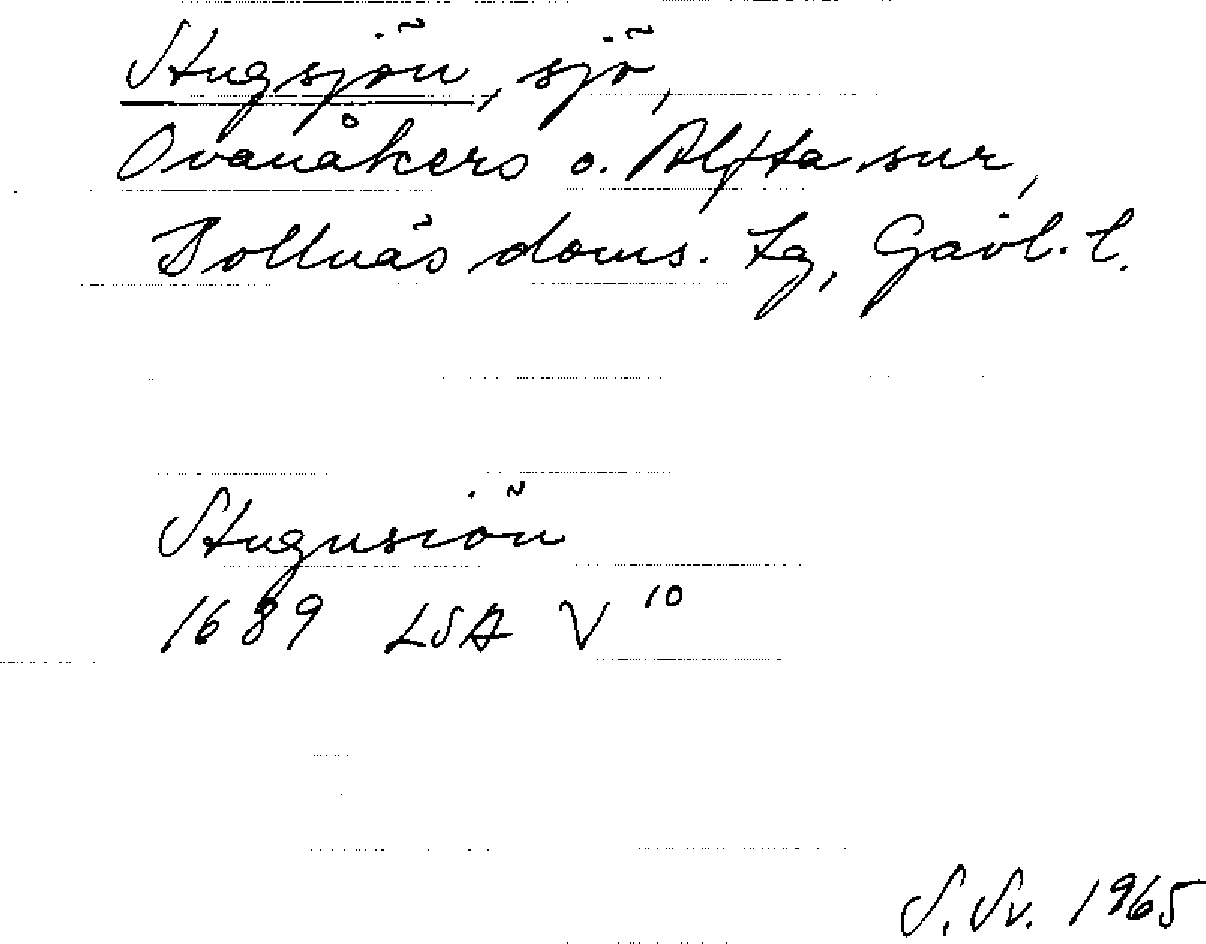 Stugsjön, sjö,
Ovanåkers o. Alfta snr,
Bollnäs doms. tg, Gävl. l.
Stugusiön
1689 LSA V 10
S. Sv. 1965